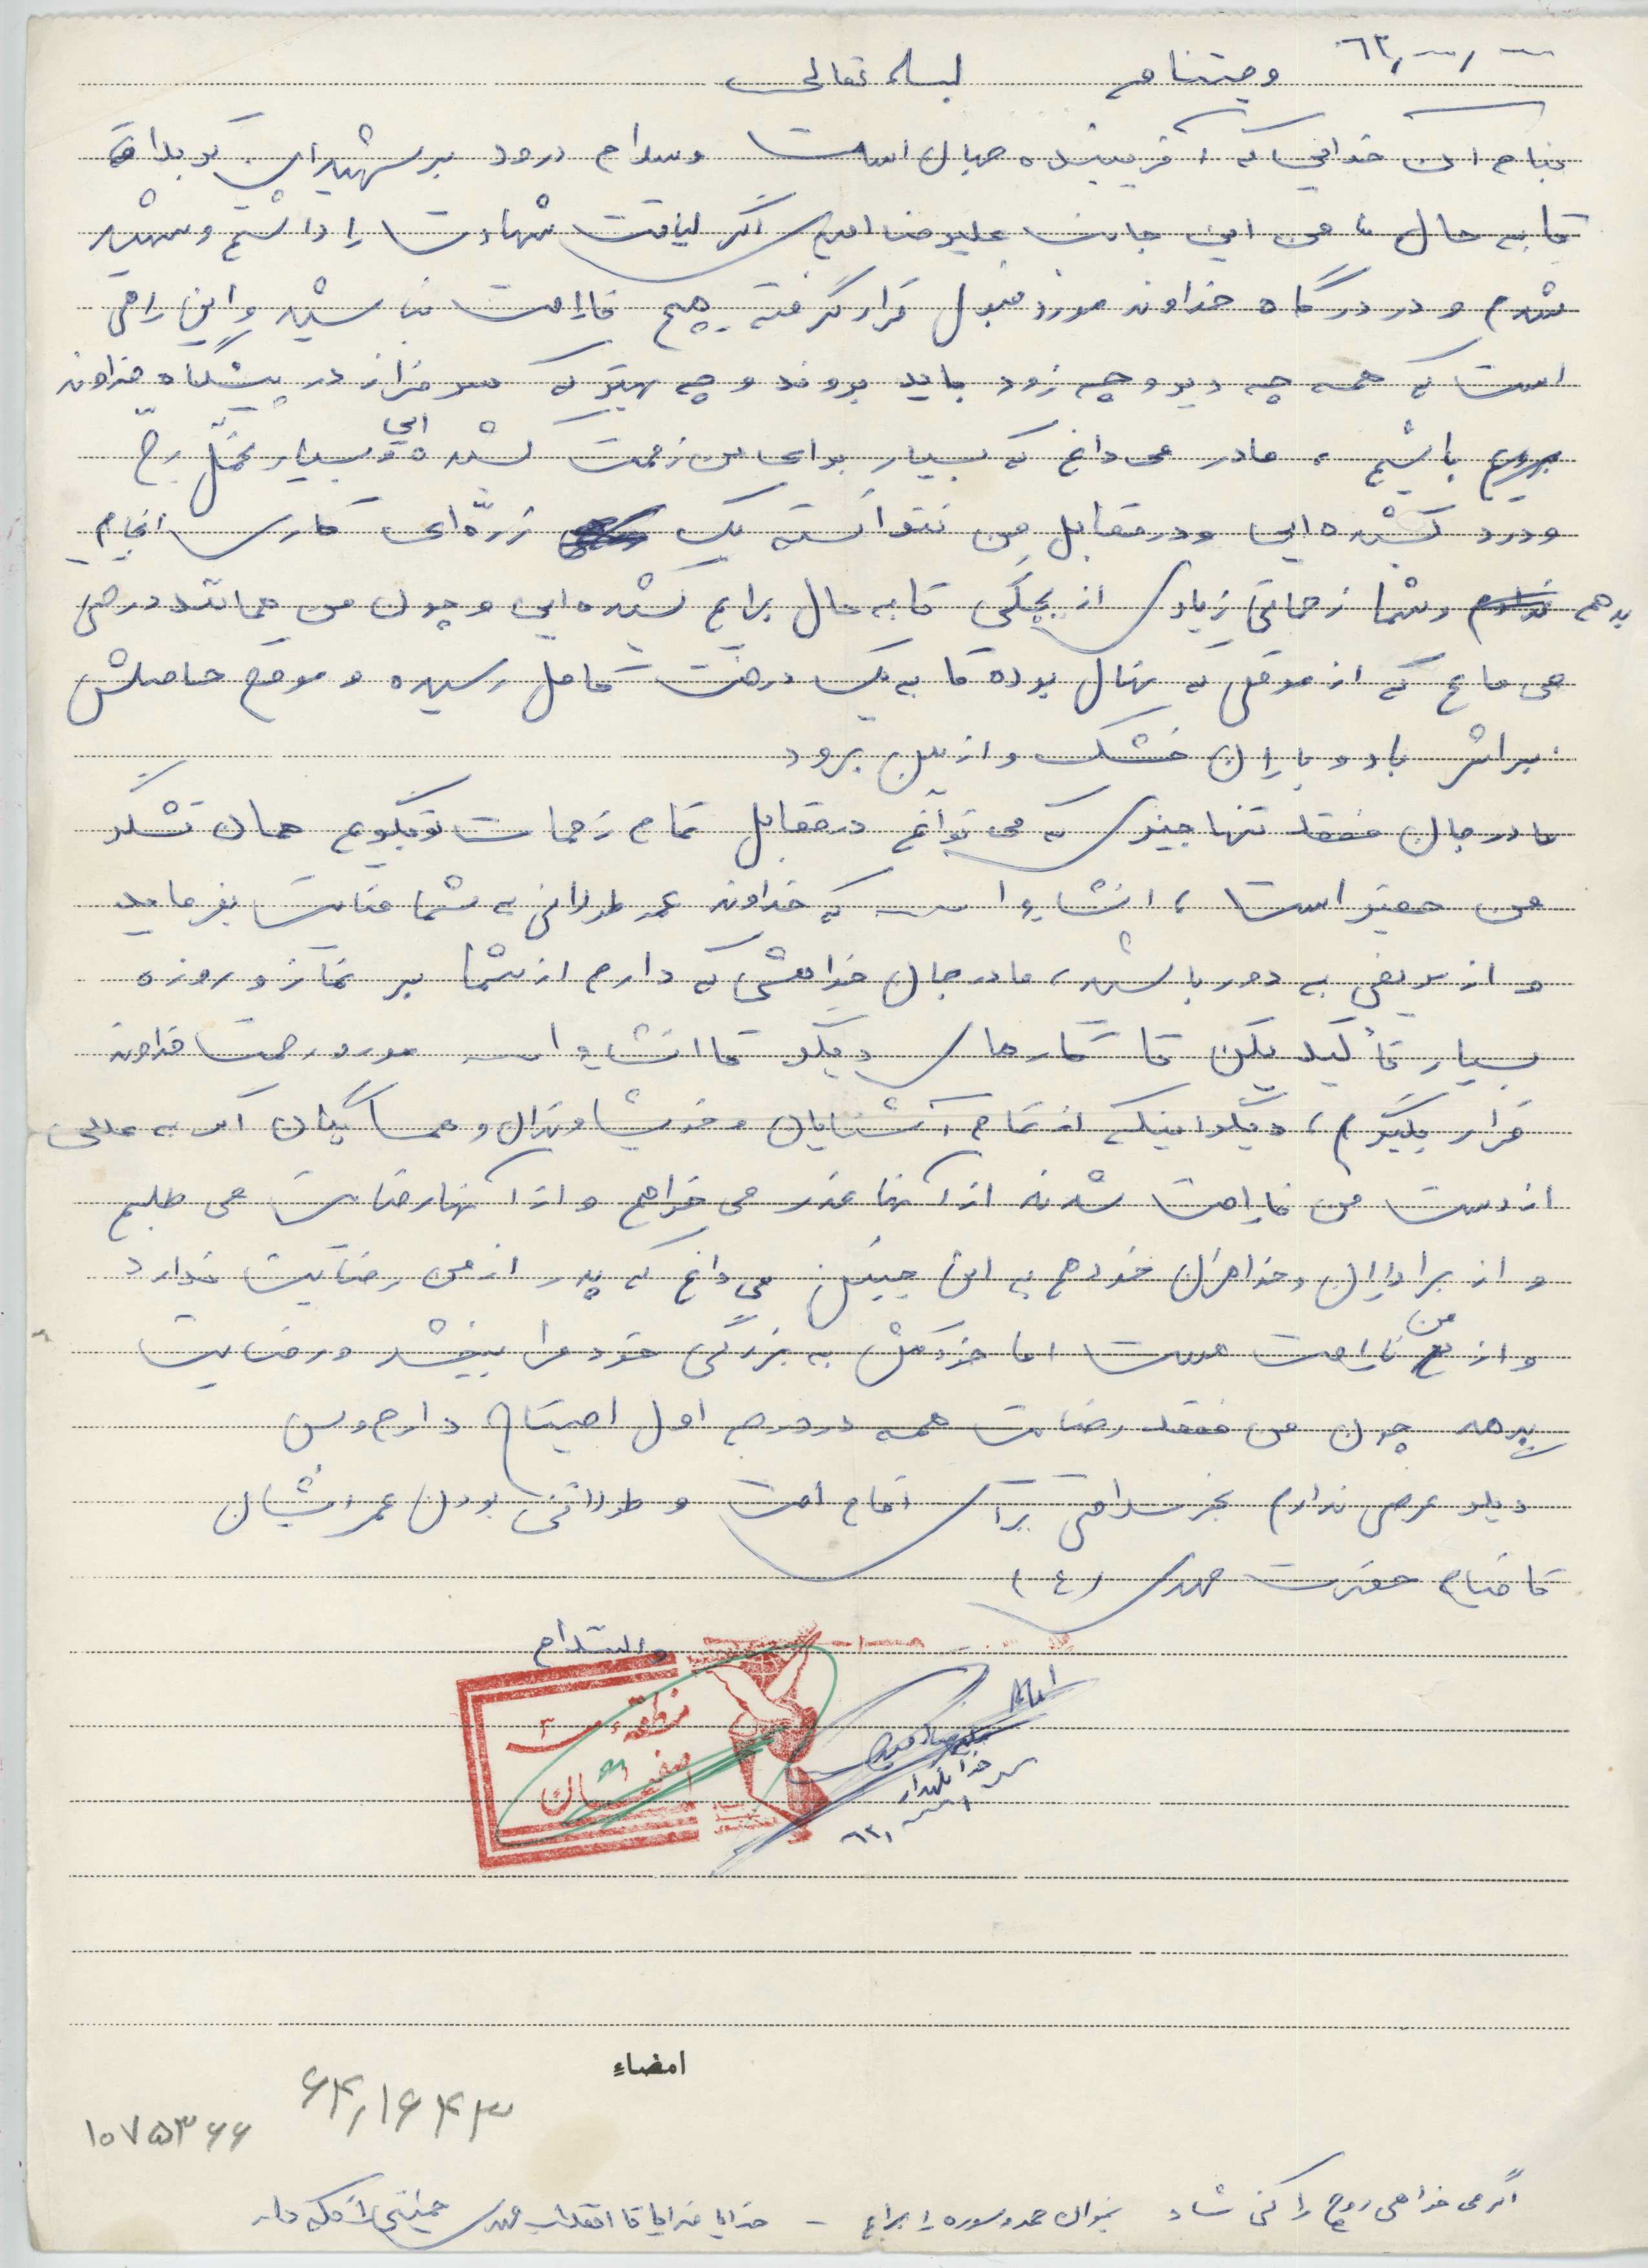 وصیتنامه بسمه تعالی ٦٢
بنام آن خدایی که آفریننده جهان است و سلام درود بر شهیدان کربلا
تا به حال، من این جانب علیرضا اگر لیاقت شهادت را داشتم و شهید
شدم و در درگاه خداوند مورد قبول قرار گرفت هیچ ناراحت نباشید و این راهی
است که همه چه دیر و چه زود باید بروند و چه بهتر که سرفراز در پیشگاه خداوند
باشیم، مادر می‌دانم که بسیار برای من زحمت کشیده ایی و بسیار تحمل رنج
و درد کشیده ایی و در مقابل من نتوانستم یک ذرّه‌ای کاری انجام
بدهم و شما زحماتی زیادی از بچگی تا به حال برایم کشیده ایی و چون من همانند درختی
می مانم که از موقعی که نهال بوده تا به یک درخت کامل رسیده و موقع حاصلش
بر اثر باد و باران خشک و از بین برود
مادر جان فقط تنها چیزی که می توانم در مقابل تمام زحمات تو بگویم همان تشکر
من حقیر است، انشاءا... که خداوند عمر طولانی به شما عنایت بفرماید
و از مریضی به دور باشید، مادر جان خواهشی که دارم از شما بر نماز و روزه
بسیار تأکید بکن تا کارهای دیگر تا انشاءا... مورد رحمت خداوند
قرار بگیرم، دیگر اینکه از تمام آشنایان و خویشاوندان و همسایگان اگر به عللی
از دست من ناراحت شدند از آنها عذر می خواهم و از آنها رضایت می طلبم
و از برادران و خواهران خود هم به این چنین می دانم که پدر از من رضایت ندارد
و از من ناراحت هست اما خودش به بزرگی خود مرا ببخشد و رضایت
بدهد چون من فقط رضایت همه در درجه اول احتیاج دارم و بس
دیگر عرضی ندارم بجز سلامتی برای امام امت و طولانی بودن عمر ایشان
تا قیام حضرت مهدی (ع)
والسلام
منطقه ۲
امضاء
خدا نگهدار
امضاء
۶۴٫۱۶۴۳
۱۰۷۵۳۶۶
اگر می خواهی روح را کنی شاد بخوان حمد و سوره را برایم - خدایا خدایا تا انقلاب مهدی خمینی را نگه دار